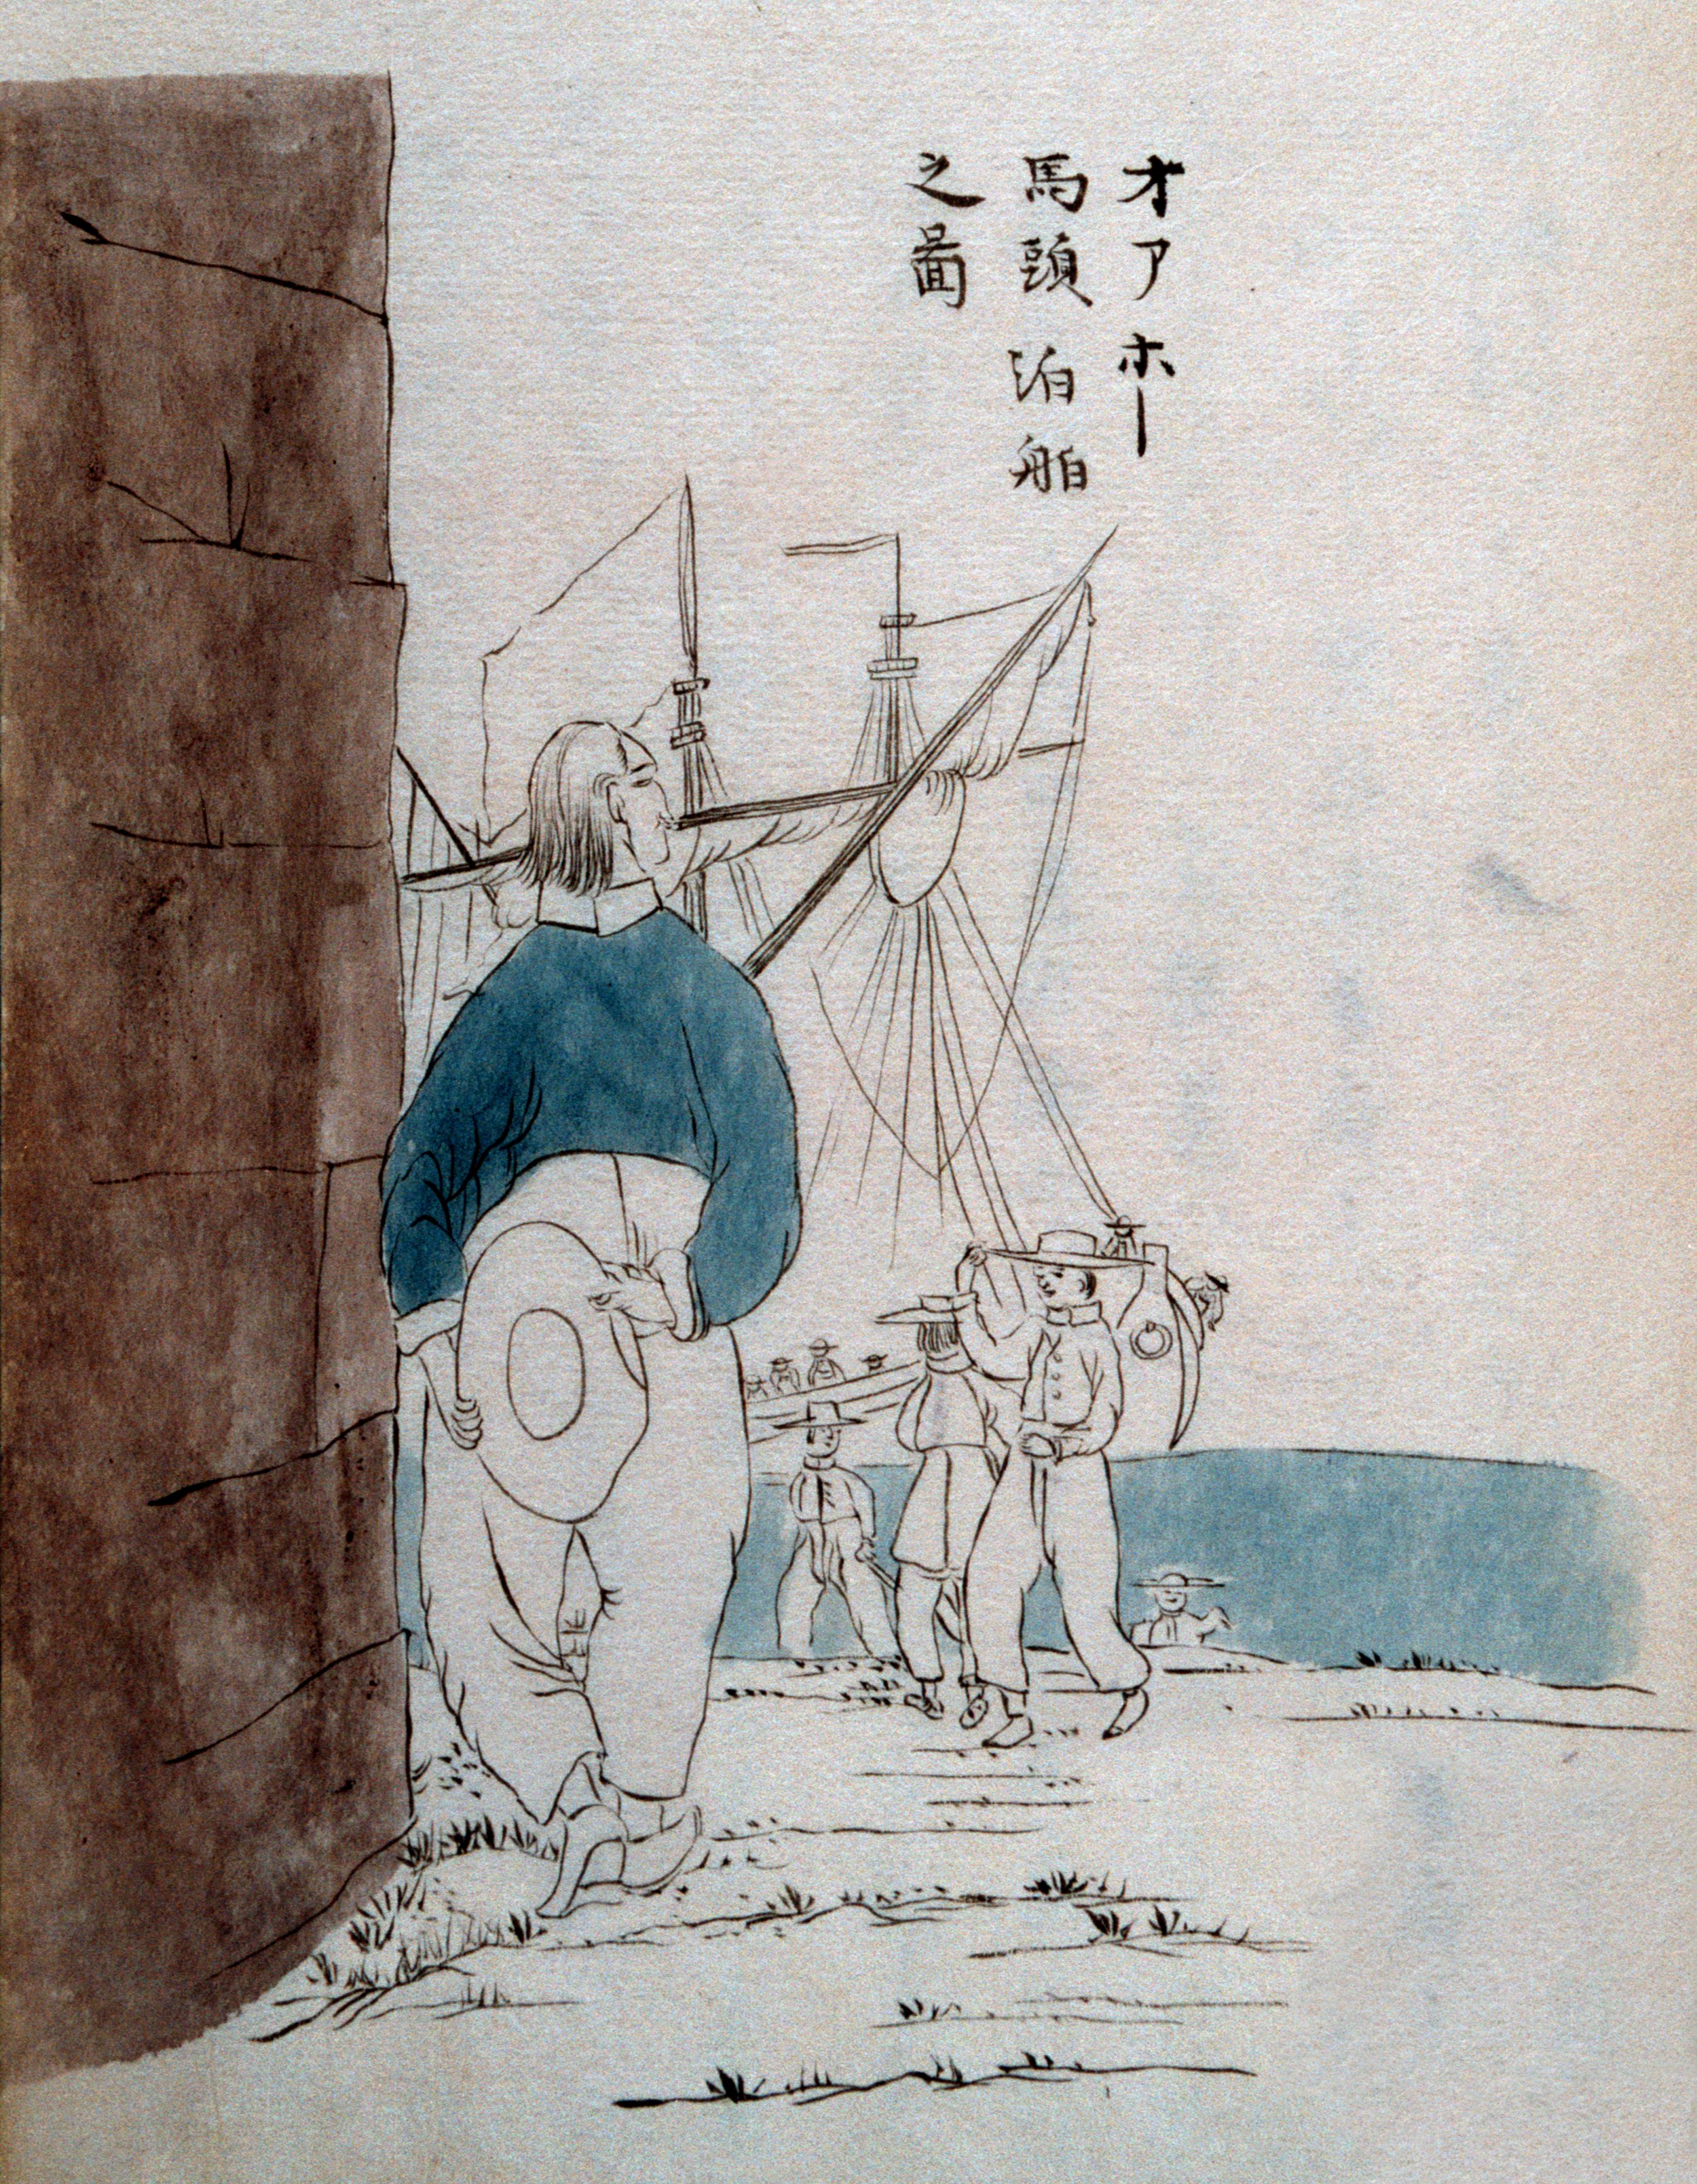 オアホー
馬頭泊舶
之啚